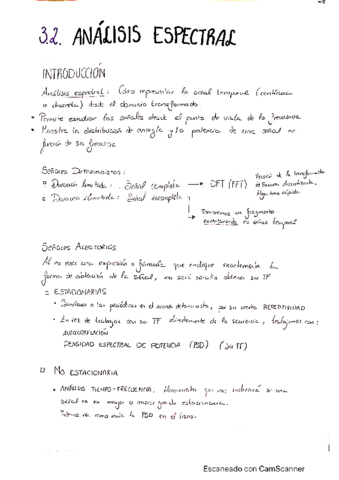 3.2. ANÁLISIS ESPECTRAL
INTRODUCCIÓN
Análisis espectral: Cómo representar la señal temporal (continua
o discreta) desde el dominio transformado.
• Permite estudiar las señales desde el punto de vista de la frecuencia
• Muestra la distribución de energía y/o potencia de una señal en
función de su frecuencia
SEÑALES DETERMINISTAS:
Duración limitada: Señal completa → DFT (FFT)
Versión de la transformada
de Fourier discretizada,
Algoritmo rápido.
Duración ilimitada: Señal incompleta
→ Tomaremos un fragmento
la señal temporal
SEÑALES ALEATORIAS
Al no tener una expresión o fórmula que indique exactamente la
forma de de la señal, no será sencillo obtener su TF
= ESTACIONARIAS
• Similares a las periódicas en el mundo determinista, por su cierta REPETITIVIDAD
• En vez de trabajar con su TF directamente de la secuencia, trabajamos con:
AUTOCORRELACIÓN
DENSIDAD ESPECTRAL DE POTENCIA (PSD) (su TF)
NO ESTACIONARIA
• ANÁLISIS TIEMPO-FRECUENCIA. Herramienta que nos indicará si una
señal es en mayor o menor grado estacionaria.
como varía la PSD en el tiempo.
Escaneado con CamScanner